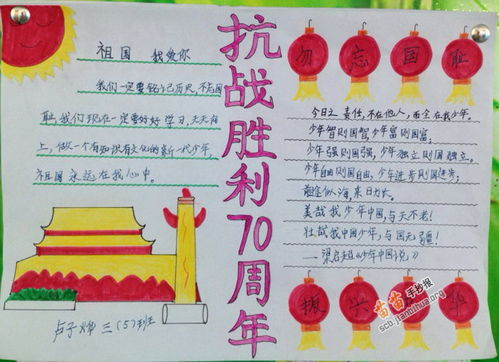 抗战胜利70周年
祖国 我爱你
我们一定要铭记历史,不忘国
耻,我们现在一定要好好学习,天天向
上,做一个有知识有文化的新一代少年,
祖国永远在我心中。
三(5)班
勿忘国耻
今日之责任,不在他人,而全在我少年。
少年智则国智,少年富则国富;
少年强则国强,少年独立则国独立。
少年自由则国自由,少年进步则国进步;
前途似海,来日方长。
美哉我少年中国,与天不老!
壮哉我中国少年,与国无疆!
——梁启超《少年中国说》
振兴
苗苗手抄报
scb.jianhuaw.org